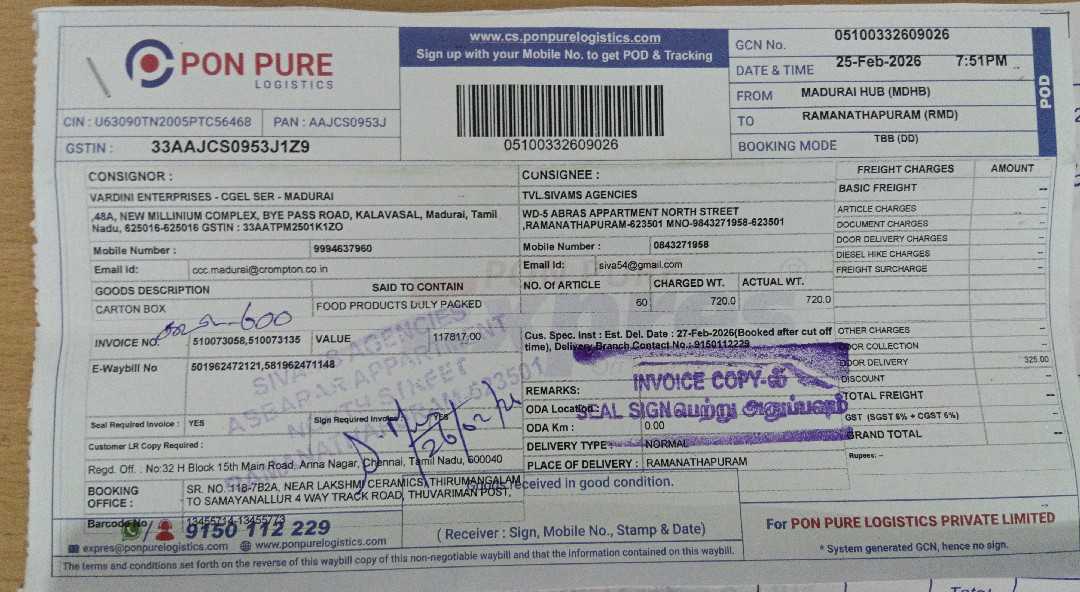 PON PURE
LOGISTICS
www.cs.ponpurelogistics.com
Sign up with your Mobile No. to get POD & Tracking
05100332609026
GCN No. 05100332609026
DATE & TIME 25-Feb-2026 7:51PM
FROM MADURAI HUB (MDHB)
TO RAMANATHAPURAM (RMD)
BOOKING MODE TBB (DD)
POD
CIN : U63090TN2005PTC56468 PAN : AAJCS0953J
GSTIN : 33AAJCS0953J1Z9
CONSIGNOR :
VARDINI ENTERPRISES - CGEL SER - MADURAI
,48A, NEW MILLINIUM COMPLEX, BYE PASS ROAD, KALAVASAL, Madurai, Tamil
Nadu, 625016-625016 GSTIN : 33AATPM2501K1ZO
Mobile Number : 9994637960
Email Id: ccc.madurai@crompton.co.in
CONSIGNEE :
TVL.SIVAMS AGENCIES
WD-5 ABRAS APPARTMENT NORTH STREET
,RAMANATHAPURAM-623501 MNO-9843271958-623501
Mobile Number : 0843271958
Email Id: siva54@gmail.com
GOODS DESCRIPTION SAID TO CONTAIN
CARTON BOX FOOD PRODUCTS DULY PACKED
NO. Of ARTICLE CHARGED WT. ACTUAL WT.
60 720.0 720.0
600
INVOICE NO 510073058,510073135 VALUE 117817.00
E-Waybill No 501962472121,581962471148
Cus. Spec. Inst : Est. Del. Date : 27-Feb-2026(Booked after cut off
time), Delivery Branch Contact No.: 9150112229
INVOICE COPY-ல்
SEAL SIGN பெற்று அனுப்பவும்
REMARKS:
ODA Location:
ODA Km : 0.00
DELIVERY TYPE: NORMAL
PLACE OF DELIVERY : RAMANATHAPURAM
Seal Required Invoice : YES Sign Required Invoice YES
Customer LR Copy Required :
SIVAMS AGENCIES
APPARTMENT
NORTH STREET
26/02/26
Regd. Off. : No:32 H Block 15th Main Road, Anna Nagar, Chennai, Tamil Nadu, 600040
BOOKING OFFICE : SR. NO 118-7B2A, NEAR LAKSHMI CERAMICS, THIRUMANGALAM
TO SAMAYANALLUR 4 WAY TRACK ROAD, THUVARIMAN POST,
Barcode No 13455714-13455773
9150 112 229
expres@ponpurelogistics.com www.ponpurelogistics.com
Goods received in good condition.
( Receiver : Sign, Mobile No., Stamp & Date)
FREIGHT CHARGES AMOUNT
BASIC FREIGHT --
ARTICLE CHARGES --
DOCUMENT CHARGES --
DOOR DELIVERY CHARGES --
DIESEL HIKE CHARGES --
FREIGHT SURCHARGE --
OTHER CHARGES --
DOOR COLLECTION --
DOOR DELIVERY 325.00
DISCOUNT --
TOTAL FREIGHT --
GST (SGST 6% + CGST 6%) --
GRAND TOTAL --
Rupees: --
For PON PURE LOGISTICS PRIVATE LIMITED
* System generated GCN, hence no sign.
The terms and conditions set forth on the reverse of this waybill copy of this non-negotiable waybill and that the information contained on this waybill.